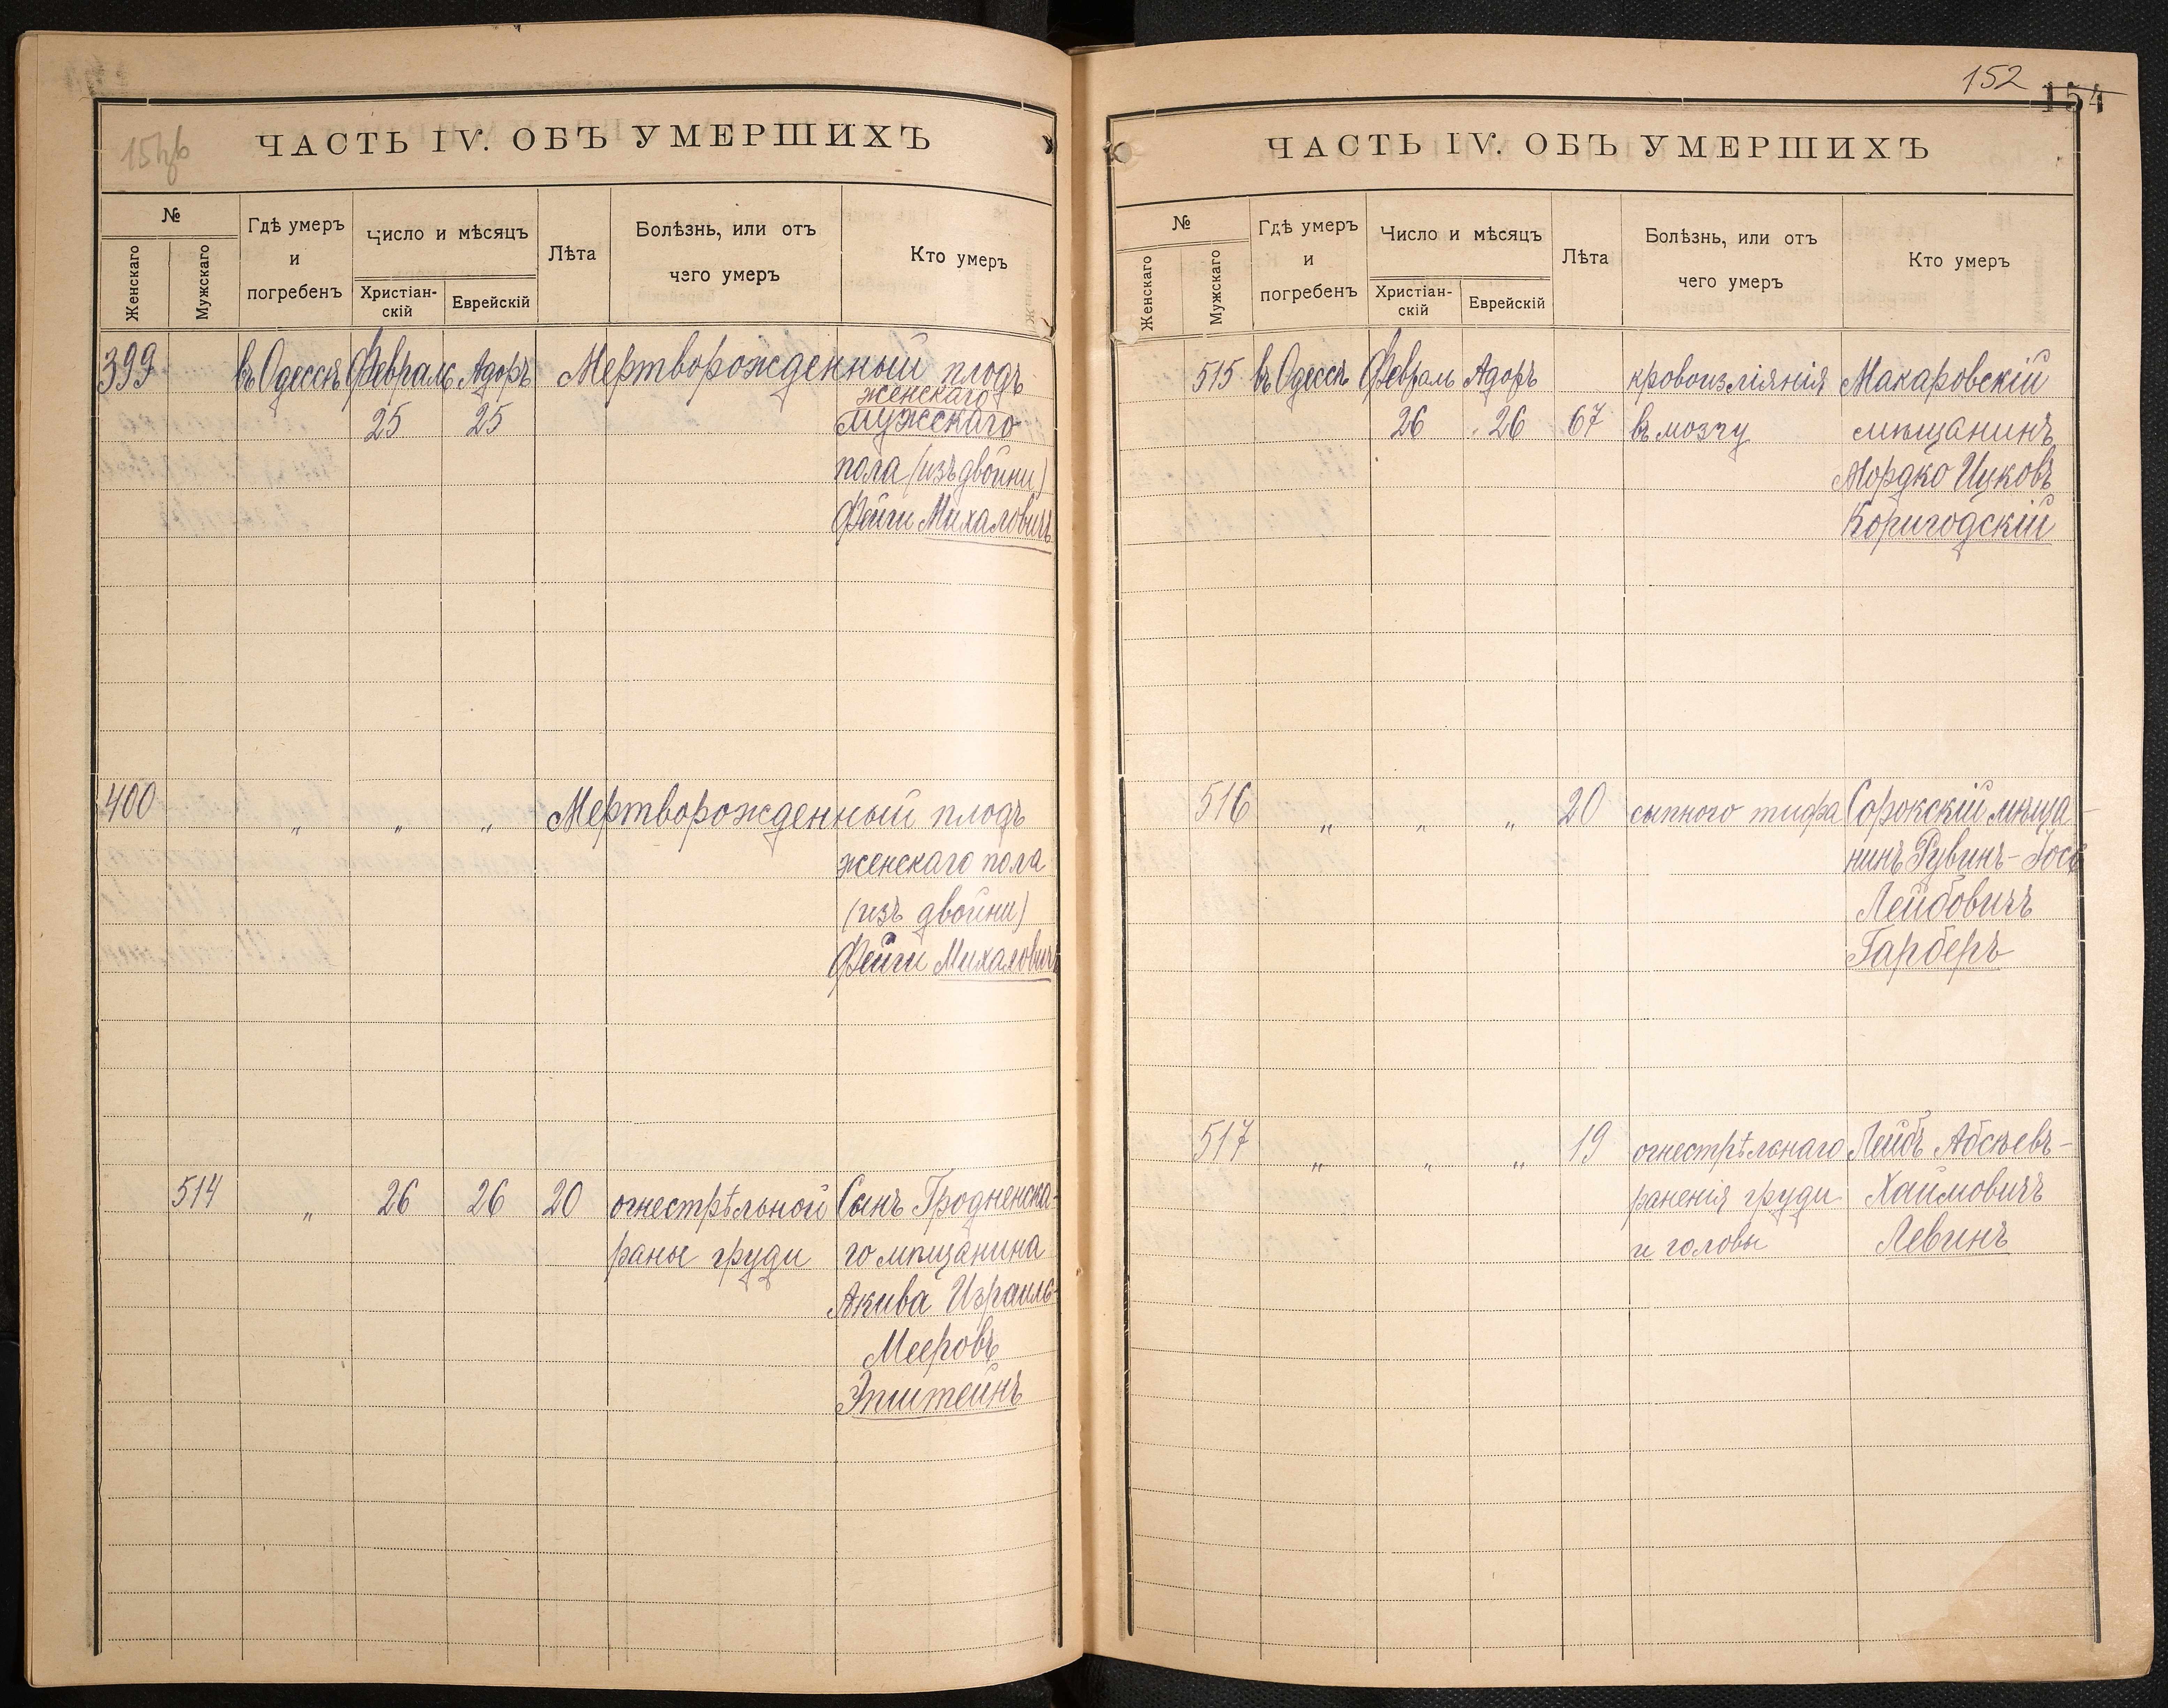 15
ЧАСТЬ IV. ОБЪ УМЕРШИХЪ
№
Женскаго
Мужскаго
Гдѣ умеръ
и
погребенъ
Число и мѣсяцъ
Христіан-
скій
Еврейскій
Лѣта
Болѣзнь, или отъ
чего умеръ
Кто умеръ
399 въ Одессѣ Февраль Адоръ Мертворожденный плодъ
женскаго
25 25 мужскаго
пола (изъ двойни)
Фейги Михаловичъ
400 " " " Мертворожденный плодъ
женскаго пола
(изъ двойни)
Фейги Михаловичъ
514 " 26 26 20 огнестрѣльной Сынъ Гродненска-
раны груди го мѣщанина
Акива Израиль-
Мееровъ
Эпштейнъ
152 154
ЧАСТЬ IV. ОБЪ УМЕРШИХЪ
№
Женскаго
Мужскаго
Гдѣ умеръ
и
погребенъ
Число и мѣсяцъ
Христіан-
скій
Еврейскій
Лѣта
Болѣзнь, или отъ
чего умеръ
Кто умеръ
515 въ Одессѣ Февраль Адоръ кровоизліянія Макаровскій
26 26 67 въ мозгу мѣщанинъ
Мордко Ицковъ
Коригодскій
516 " " " 20 сыпного тифа Сорокскій мѣща-
нинъ Рувинъ-Іось
Лейбовичъ
Гарберъ
517 " " " 19 огнестрѣльнаго Лейбъ Абсѣевъ-
раненія груди Хаимовичъ
и головы Левинъ